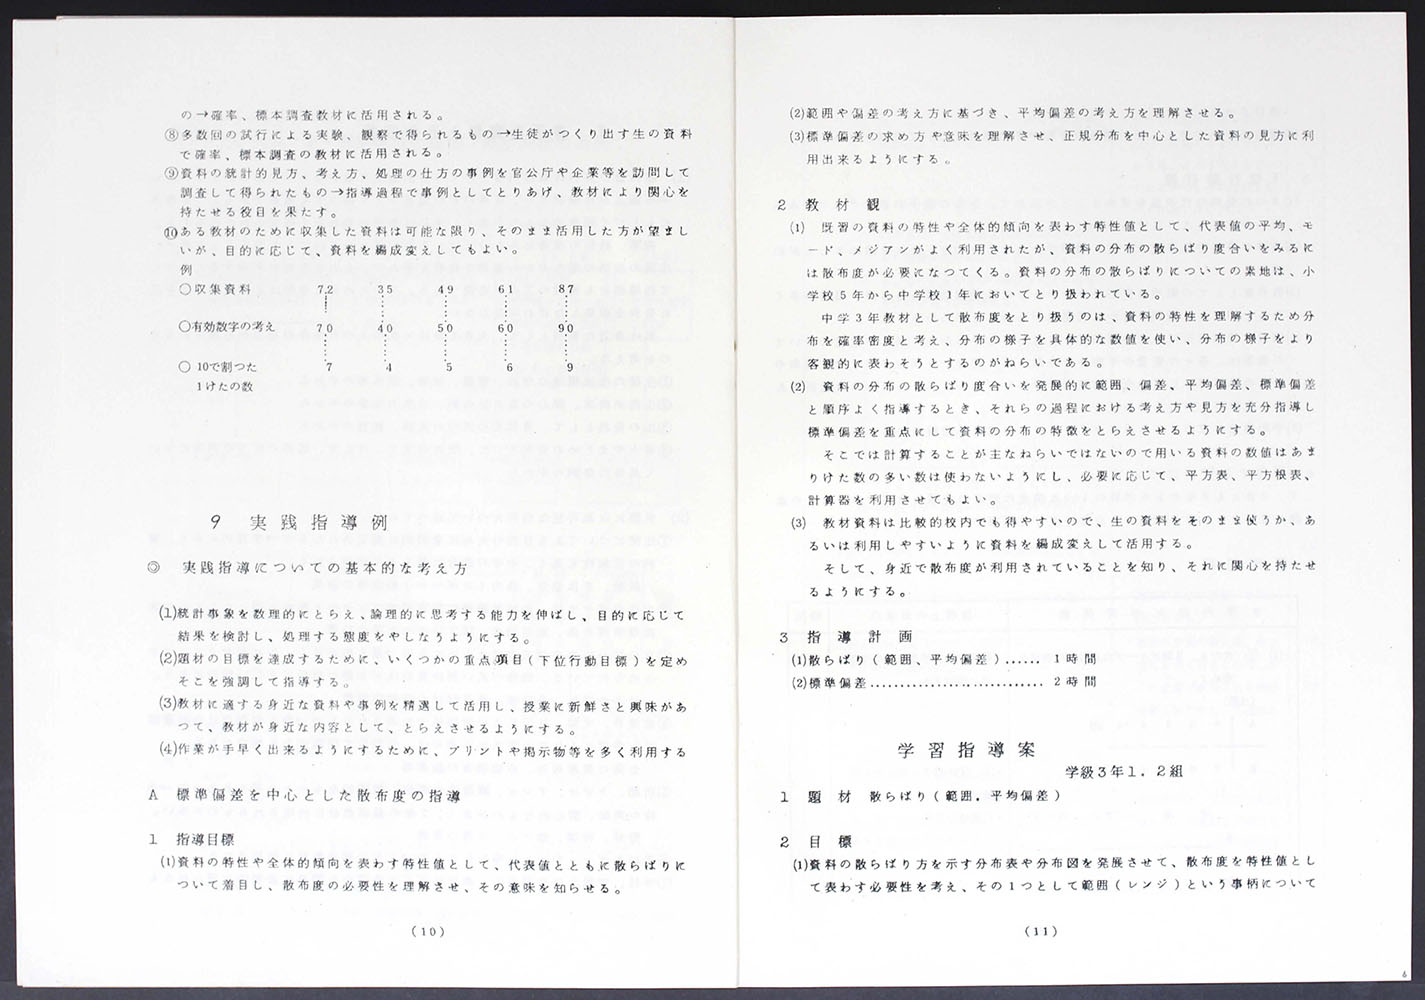 の→確率、標本調査教材に活用される。
⑧多数回の試行による実験、観察で得られるもの→生徒がつくり出す生の資料
で確率、標本調査の教材に活用される。
⑨資料の統計的見方、考え方、処理の仕方の事例を官公庁や企業等を訪問して
調査して得られたもの→指導過程で事例としてとりあげ、教材により関心を
持たせる役目を果たす。
⑩ある教材のために収集した資料は可能な限り、そのまま活用した方が望まし
いが、目的に応じて、資料を編成変えしてもよい。
例
○収集資料 72 35 49 61 87
○有効数字の考え 70 40 50 60 90
○ 10で割つた 7 4 5 6 9
1けたの数
9 実践指導例
◎ 実践指導についての基本的な考え方
(1)統計事象を数理的にとらえ、論理的に思考する能力を伸ばし、目的に応じて
結果を検討し、処理する態度をやしなうようにする。
(2)題材の目標を達成するために、いくつかの重点項目(下位行動目標)を定め
そこを強調して指導する。
(3)教材に適する身近な資料や事例を精選して活用し、授業に新鮮さと興味があ
つて、教材が身近な内容として、とらえさせるようにする。
(4)作業が手早く出来るようにするために、プリントや掲示物等を多く利用する
A 標準偏差を中心とした散布度の指導
1 指導目標
(1)資料の特性や全体的傾向を表わす特性値として、代表値とともに散らばりに
ついて着目し、散布度の必要性を理解させ、その意味を知らせる。
(10)
(2)範囲や偏差の考え方に基づき、平均偏差の考え方を理解させる。
(3)標準偏差の求め方や意味を理解させ、正規分布を中心とした資料の見方に利
用出来るようにする。
2 教材観
(1) 既習の資料の特性や全体的傾向を表わす特性値として、代表値の平均、モ
ード、メジアンがよく利用されたが、資料の分布の散らばり度合いをみるに
は散布度が必要になつてくる。資料の分布の散らばりについての素地は、小
学校5年から中学校1年においてとり扱われている。
中学3年教材として散布度をとり扱うのは、資料の特性を理解するため分
布を確率密度と考え、分布の様子を具体的な数値を使い、分布の様子をより
客観的に表わそうとするのがねらいである。
(2) 資料の分布の散らばり度合いを発展的に範囲、偏差、平均偏差、標準偏差
と順序よく指導するとき、それらの過程における考え方や見方を充分指導し
標準偏差を重点にして資料の分布の特徴をとらえさせるようにする。
そこでは計算することが主なねらいではないので用いる資料の数値はあま
りけた数の多い数は使わないようにし、必要に応じて、平方表、平方根表、
計算器を利用させてもよい。
(3) 教材資料は比較的校内でも得やすいので、生の資料をそのまま使うか、あ
るいは利用しやすいように資料を編成変えして活用する。
そして、身近で散布度が利用されていることを知り、それに関心を持たせ
るようにする。
3 指導計画
(1)散らばり(範囲、平均偏差)…… 1時間
(2)標準偏差………………………… 2時間
学習指導案
学級3年1.2組
1 題材 散らばり(範囲.平均偏差)
2 目標
(1)資料の散らばり方を示す分布表や分布図を発展させて、散布度を特性値とし
て表わす必要性を考え、その1つとして範囲(レンジ)という事柄について
(11)
6